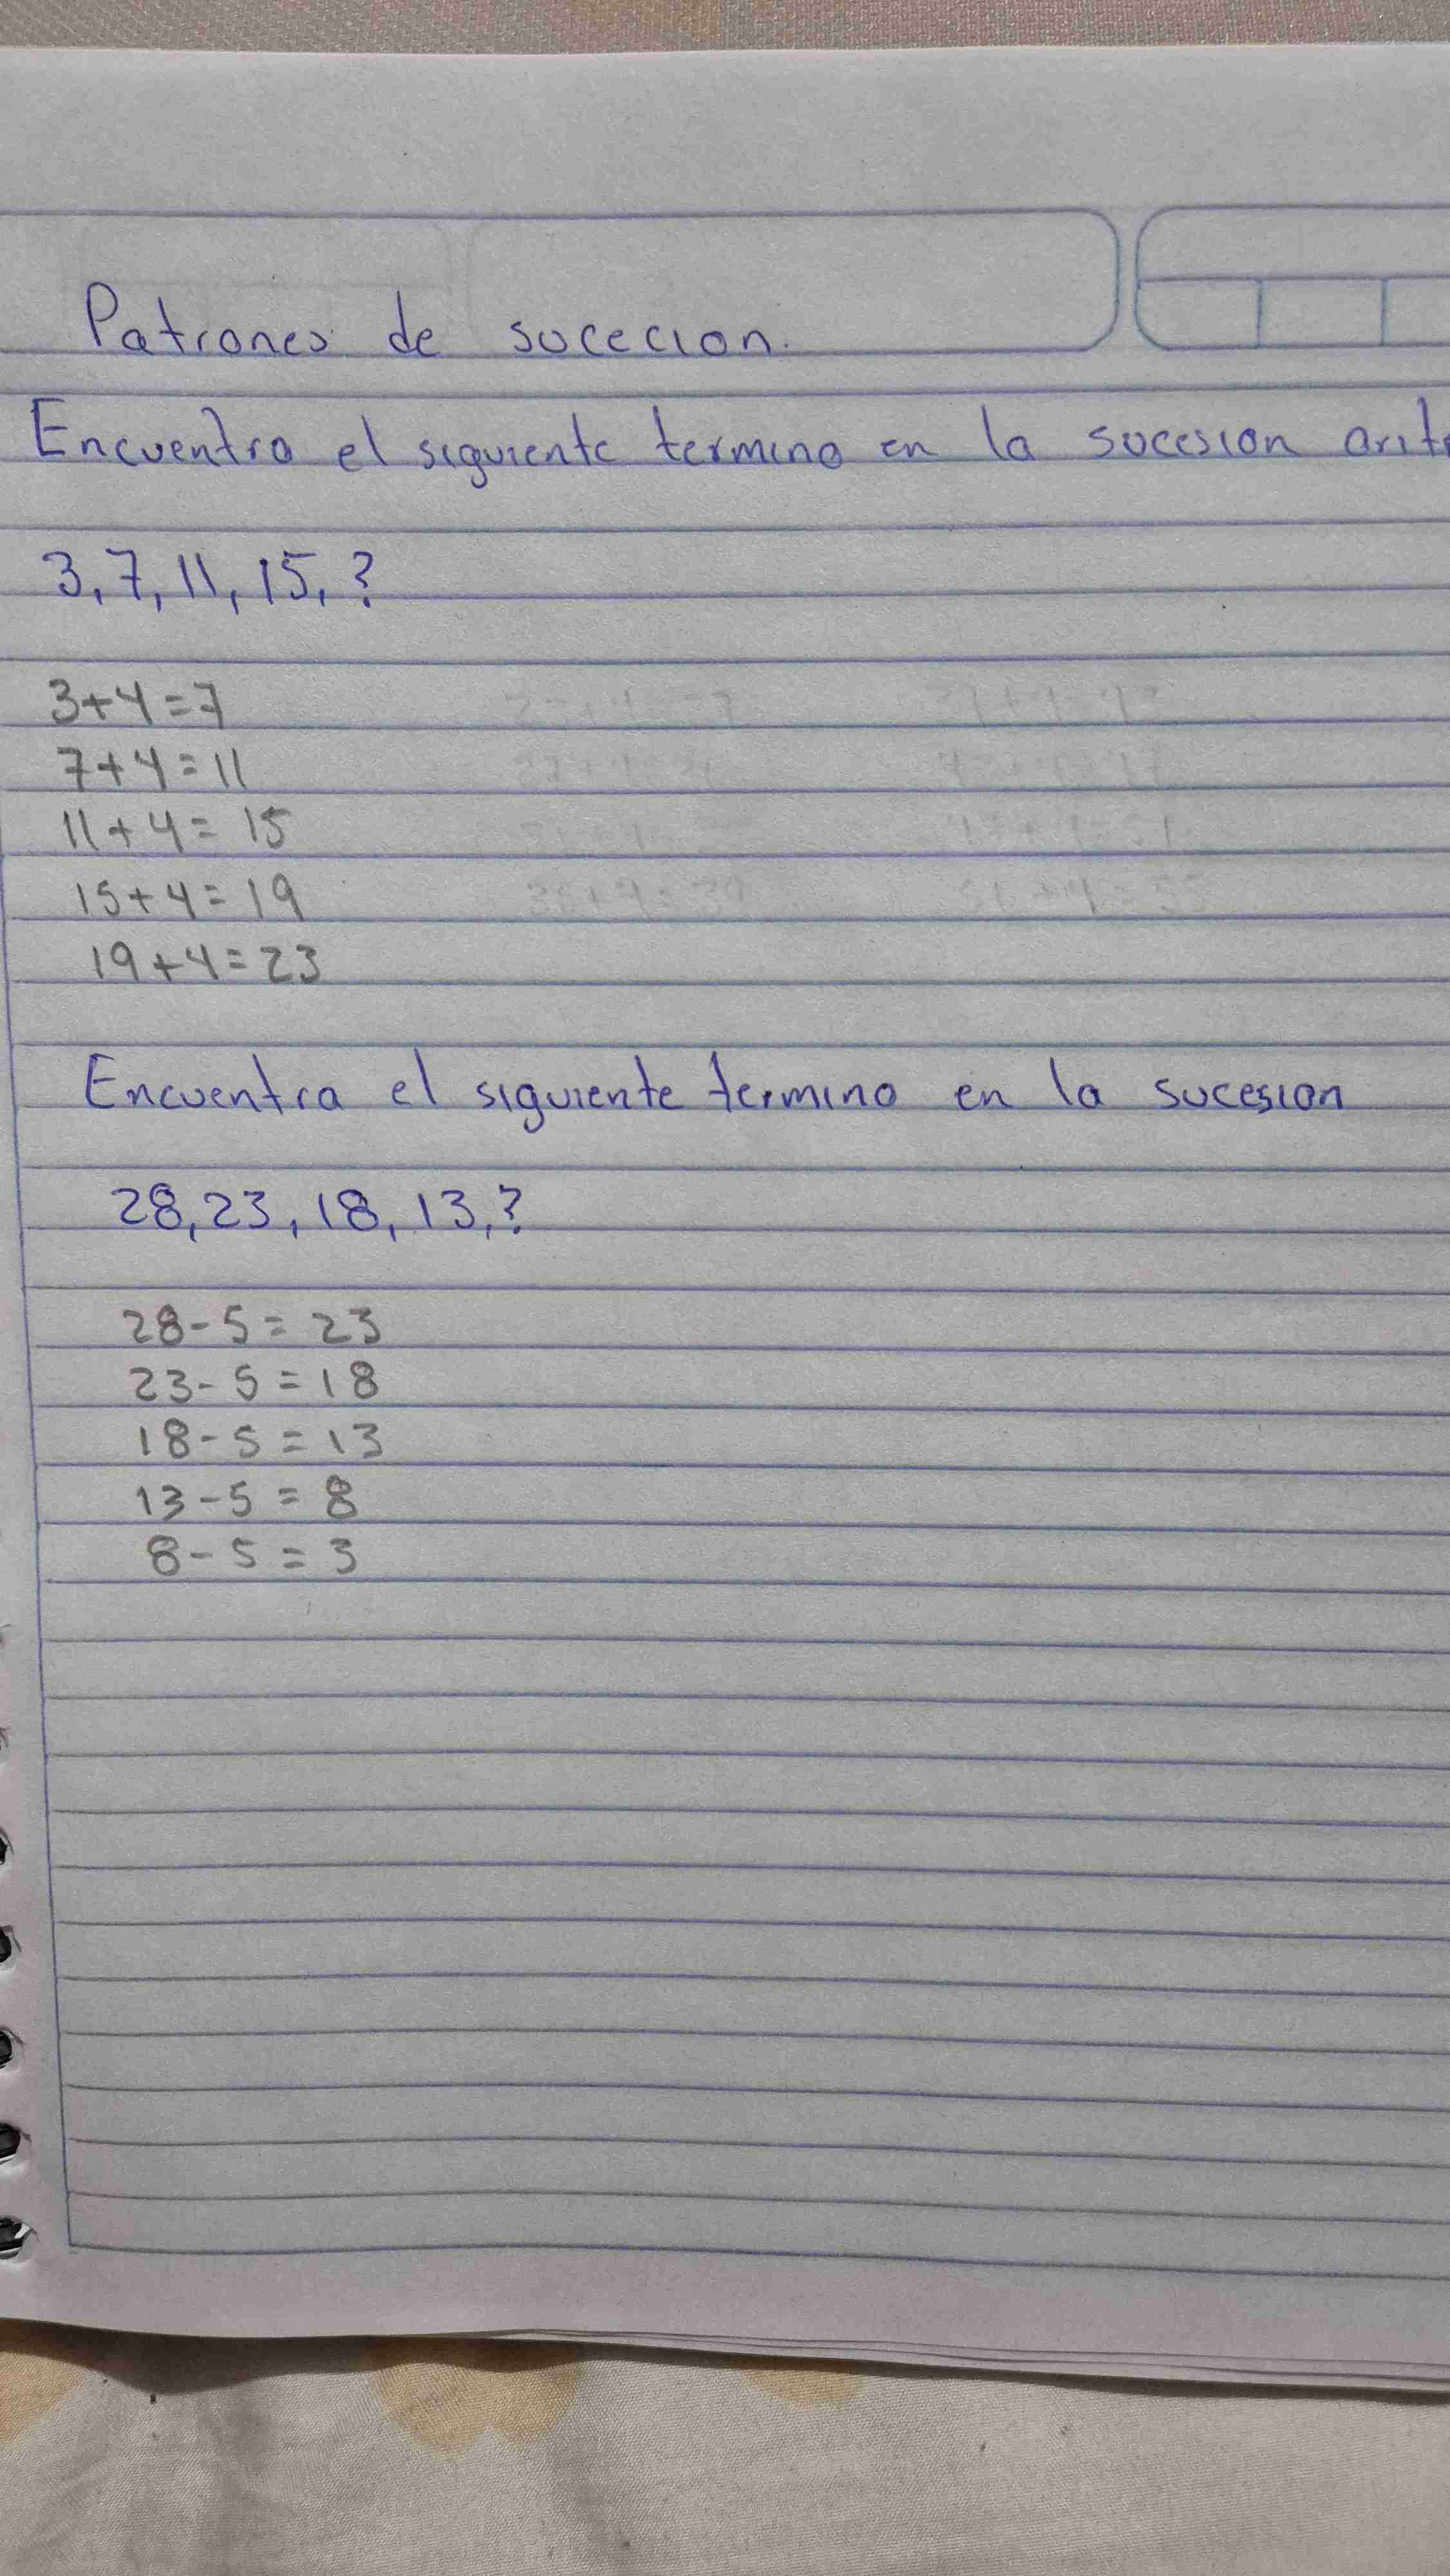 Patrones de sucecion.
Encuentra el siguiente termino en la sucesion
3, 7, 11, 15, ?
3+4=7
7+4=11
11+4=15
15+4=19
19+4=23
Encuentra el siguiente termino en la sucesion
28, 23, 18, 13, ?
28-5=23
23-5=18
18-5=13
13-5=8
8-5=3